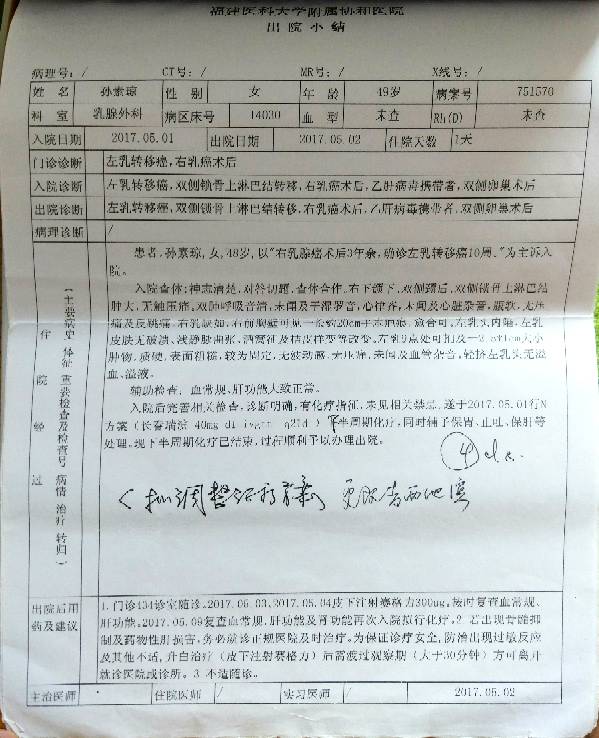 福建医科大学附属协和医院
出 院 小 结
病理号: / CT号: / MR号: / X线号: /
姓 名 孙素琼 性 别 女 年 龄 49岁 病案号 751570
科 室 乳腺外科 病区床号 14030 血 型 未查 Rh(D) 未查
入院日期 2017.05.01 出院日期 2017.05.02 住院天数 1天
门诊诊断 左乳转移癌,右乳癌术后
入院诊断 左乳转移癌,双侧锁骨上淋巴结转移,右乳癌术后,乙肝病毒携带者,双侧卵巢术后
出院诊断 左乳转移癌,双侧锁骨上淋巴结转移,右乳癌术后,乙肝病毒携带者,双侧卵巢术后
病理诊断 /
住院经过
(主要病史 体征 重要检查及检查号 病情 治疗 转归)
患者,孙素琼,女,48岁,以"右乳腺癌术后3年余,确诊左乳转移癌10周。"为主诉入
院。
入院查体:神志清楚,对答切题,查体合作。右下颌下、双侧颈后、双侧锁骨上淋巴结
肿大,无触压痛。双肺呼吸音清,未闻及干湿罗音,心律齐,未闻及心脏杂音,腹软,无压
痛及反跳痛。右乳缺如,右前胸壁可见一长约20cm手术疤痕,愈合可。左乳头内陷,左乳
皮肤无破溃、浅静脉曲张、酒窝征及桔皮样变等改变。左乳9点处可扪及一
肿物,质硬,表面粗糙,较为固定,无波动感,无压痛,未闻及血管杂音,轻挤左乳头无溢
血、溢液。
辅助检查:血常规、肝功能大致正常。
入院后完善相关检查,诊断明确,有化疗指征,未见相关禁忌,遂于2017.05.01行N
方案(长春瑞滨 40mg d1 ivgtt q21d)下半周期化疗,同时辅予保胃、止吐、保肝等
处理。现下半周期化疗已结束,过程顺利予以办理出院。
④
拟调整治疗方案 更服吉西他滨
出院后用药及建议
1.门诊434诊室随诊。2017.05.03、2017.05.04皮下注射赛格力300ug。按时复查血常规、
肝功能。2017.05.09复查血常规、肝功能及肾功能再次入院拟行化疗。2 若出现骨髓抑
制及药物性肝损害,务必就诊正规医院及时治疗。为保证诊疗安全,防治出现过敏反应
及其他不适,升白治疗(皮下注射赛格力)后需渡过观察期(大于30分钟)方可离开
就诊医院或诊所。3 不适随诊。
主治医师 / 住院医师 / 实习医师 / 2017.05.02